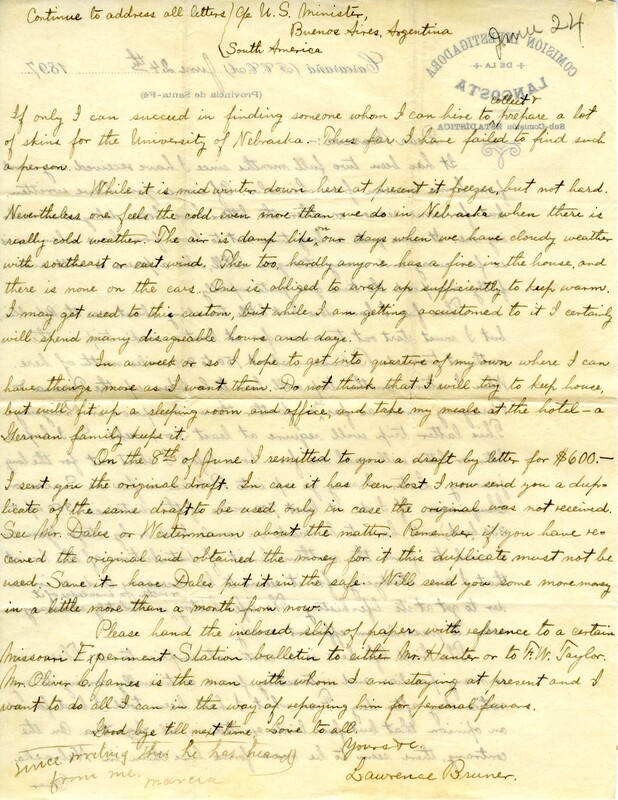 Continue to address all letters c/o U.S. Minister,
Buenos Aires, Argentina
South America
June 24
COMISION INVESTIGADORA
DE LA
LANGOSTA
Sub-Comisión ESTADÍSTICA
Carcarañá (F.C.C.A.) June 24th 1897
(Provincia de Santa-Fé)
collect &
If only I can succeed in finding someone whom I can hire to prepare a lot
of skins for the University of Nebraska. Thus far I have failed to find such
a person.
While it is mid winter down here at present it freezes, but not hard.
Nevertheless one feels the cold even more than we do in Nebraska when there is
really cold weather. The air is damp like on our days when we have cloudy weather
with southeast or east wind. Then too, hardly anyone has a fire in the house, and
there is none on the cars. One is obliged to wrap up sufficiently to keep warm.
I may get used to this custom, but while I am getting accustomed to it I certainly
will spend many disagreable hours and days.
In a week or so I hope to get into quarters of my own where I can
have things more as I want them. Do not think that I will try to keep house,
but will fit up a sleeping room and office, and take my meals at the hotel – a
German family keeps it.
On the 8th of June I remitted to you a draft by letter for $600.–
I sent you the original draft. In case it has been lost I now send you a dup-
licate of the same draft to be used only in case the original was not received.
See Mr. Dales or Westermann about the matter. Remember, if you have re-
ceived the original and obtained the money for it this duplicate must not be
used. Save it – have Dales put it in the safe. Will send you some more money
in a little more than a month from now.
Please hand the inclosed slip of paper with reference to a certain
Missouri Experiment Station bulletin to either Mr. Hunter or to F.W. Taylor.
Mr. Oliver C. James is the man with whom I am staying at present and I
want to do all I can in the way of repaying him for personal favors.
Good bye till next time. Love to all.
Yours &c.
Lawrence Bruner.
Since writing this he has heard
from me. Marcia